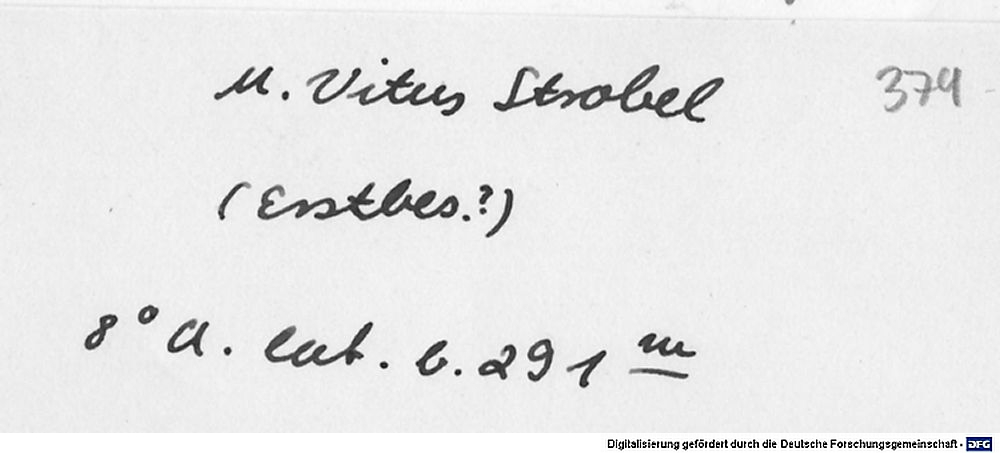 M. Vitus Strobel 379
(Erstbes.?)
8° A. lat. b. 291 m
Digitalisierung gefördert durch die Deutsche Forschungsgemeinschaft - DFG